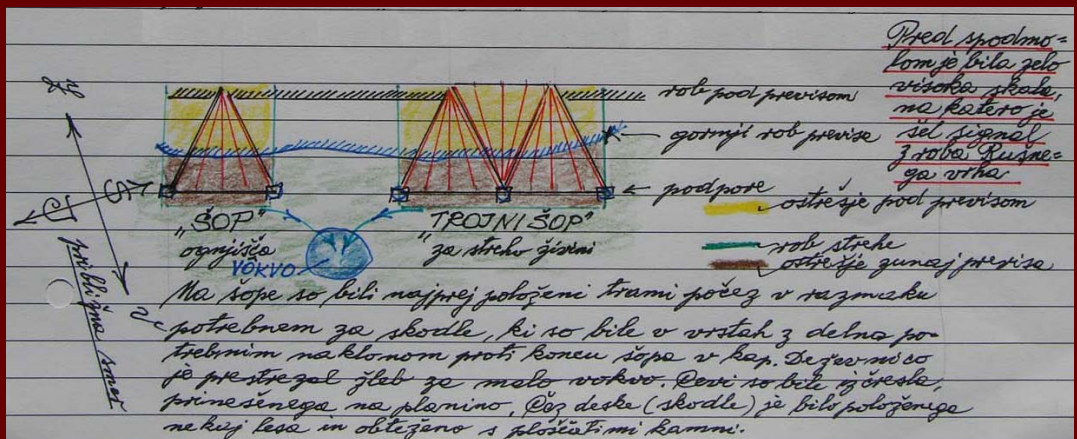 Pred spodmo=
lom je bila zelo
visoka skala,
na katero je
šel signal
z roba Rušne=
ga vrha
rob pod previsom
gornji rob previsa
podpore
ostrešje pod previsom
rob strehe
ostrešje zunaj previsa
Z
S
J
V
približna smer
"ŠOP"
ognjišča
VOKVO
"TROJNI ŠOP"
za streho živini
Na šope so bili najprej položeni trami počez v razmaku
potrebnem za skodle, ki so bile v vrstah z delna po-
trebnim naklonom proti koncu šopa v kap. Deževnico
je prestrezal žleb za malo vokvo. Cevi so bile iz česla,
prinešenega na planino. Čez deske (skodle) je bilo položenega
nekaj lesa in obteženo s ploščatimi kamni.